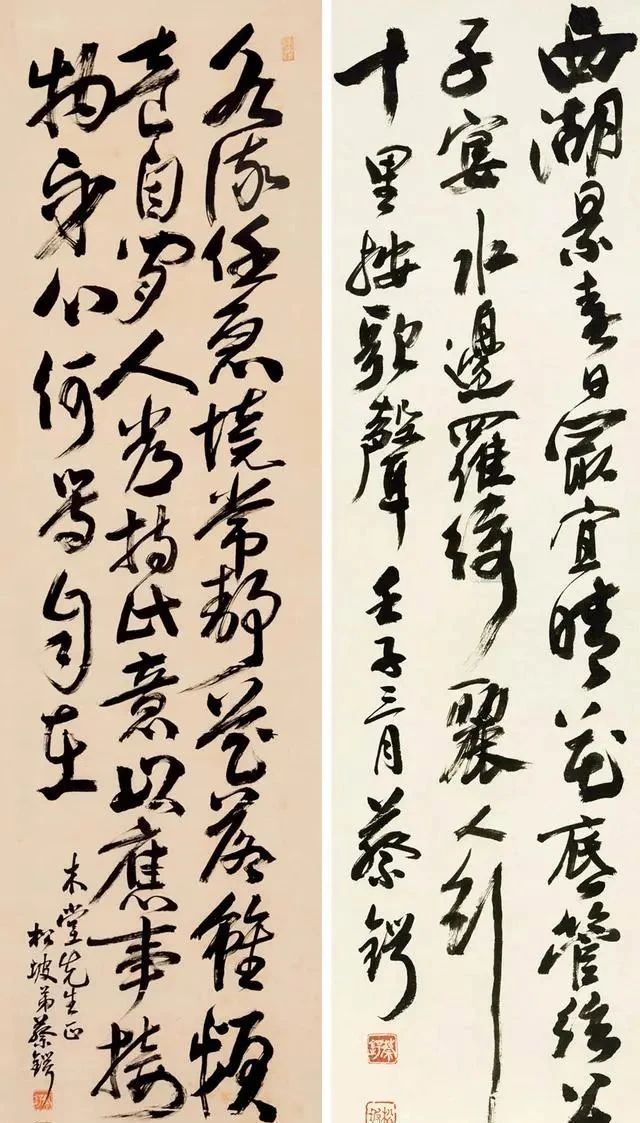 西湖景春日最宜晴花底管絃公
子宴水邊羅綺麗人行
十里按歌聲 壬子三月 蔡鍔
水流任急境常靜花落雖頻
意自閑人常持此意以應事接
物身心何等自在
木堂先生正
松坡弟蔡鍔